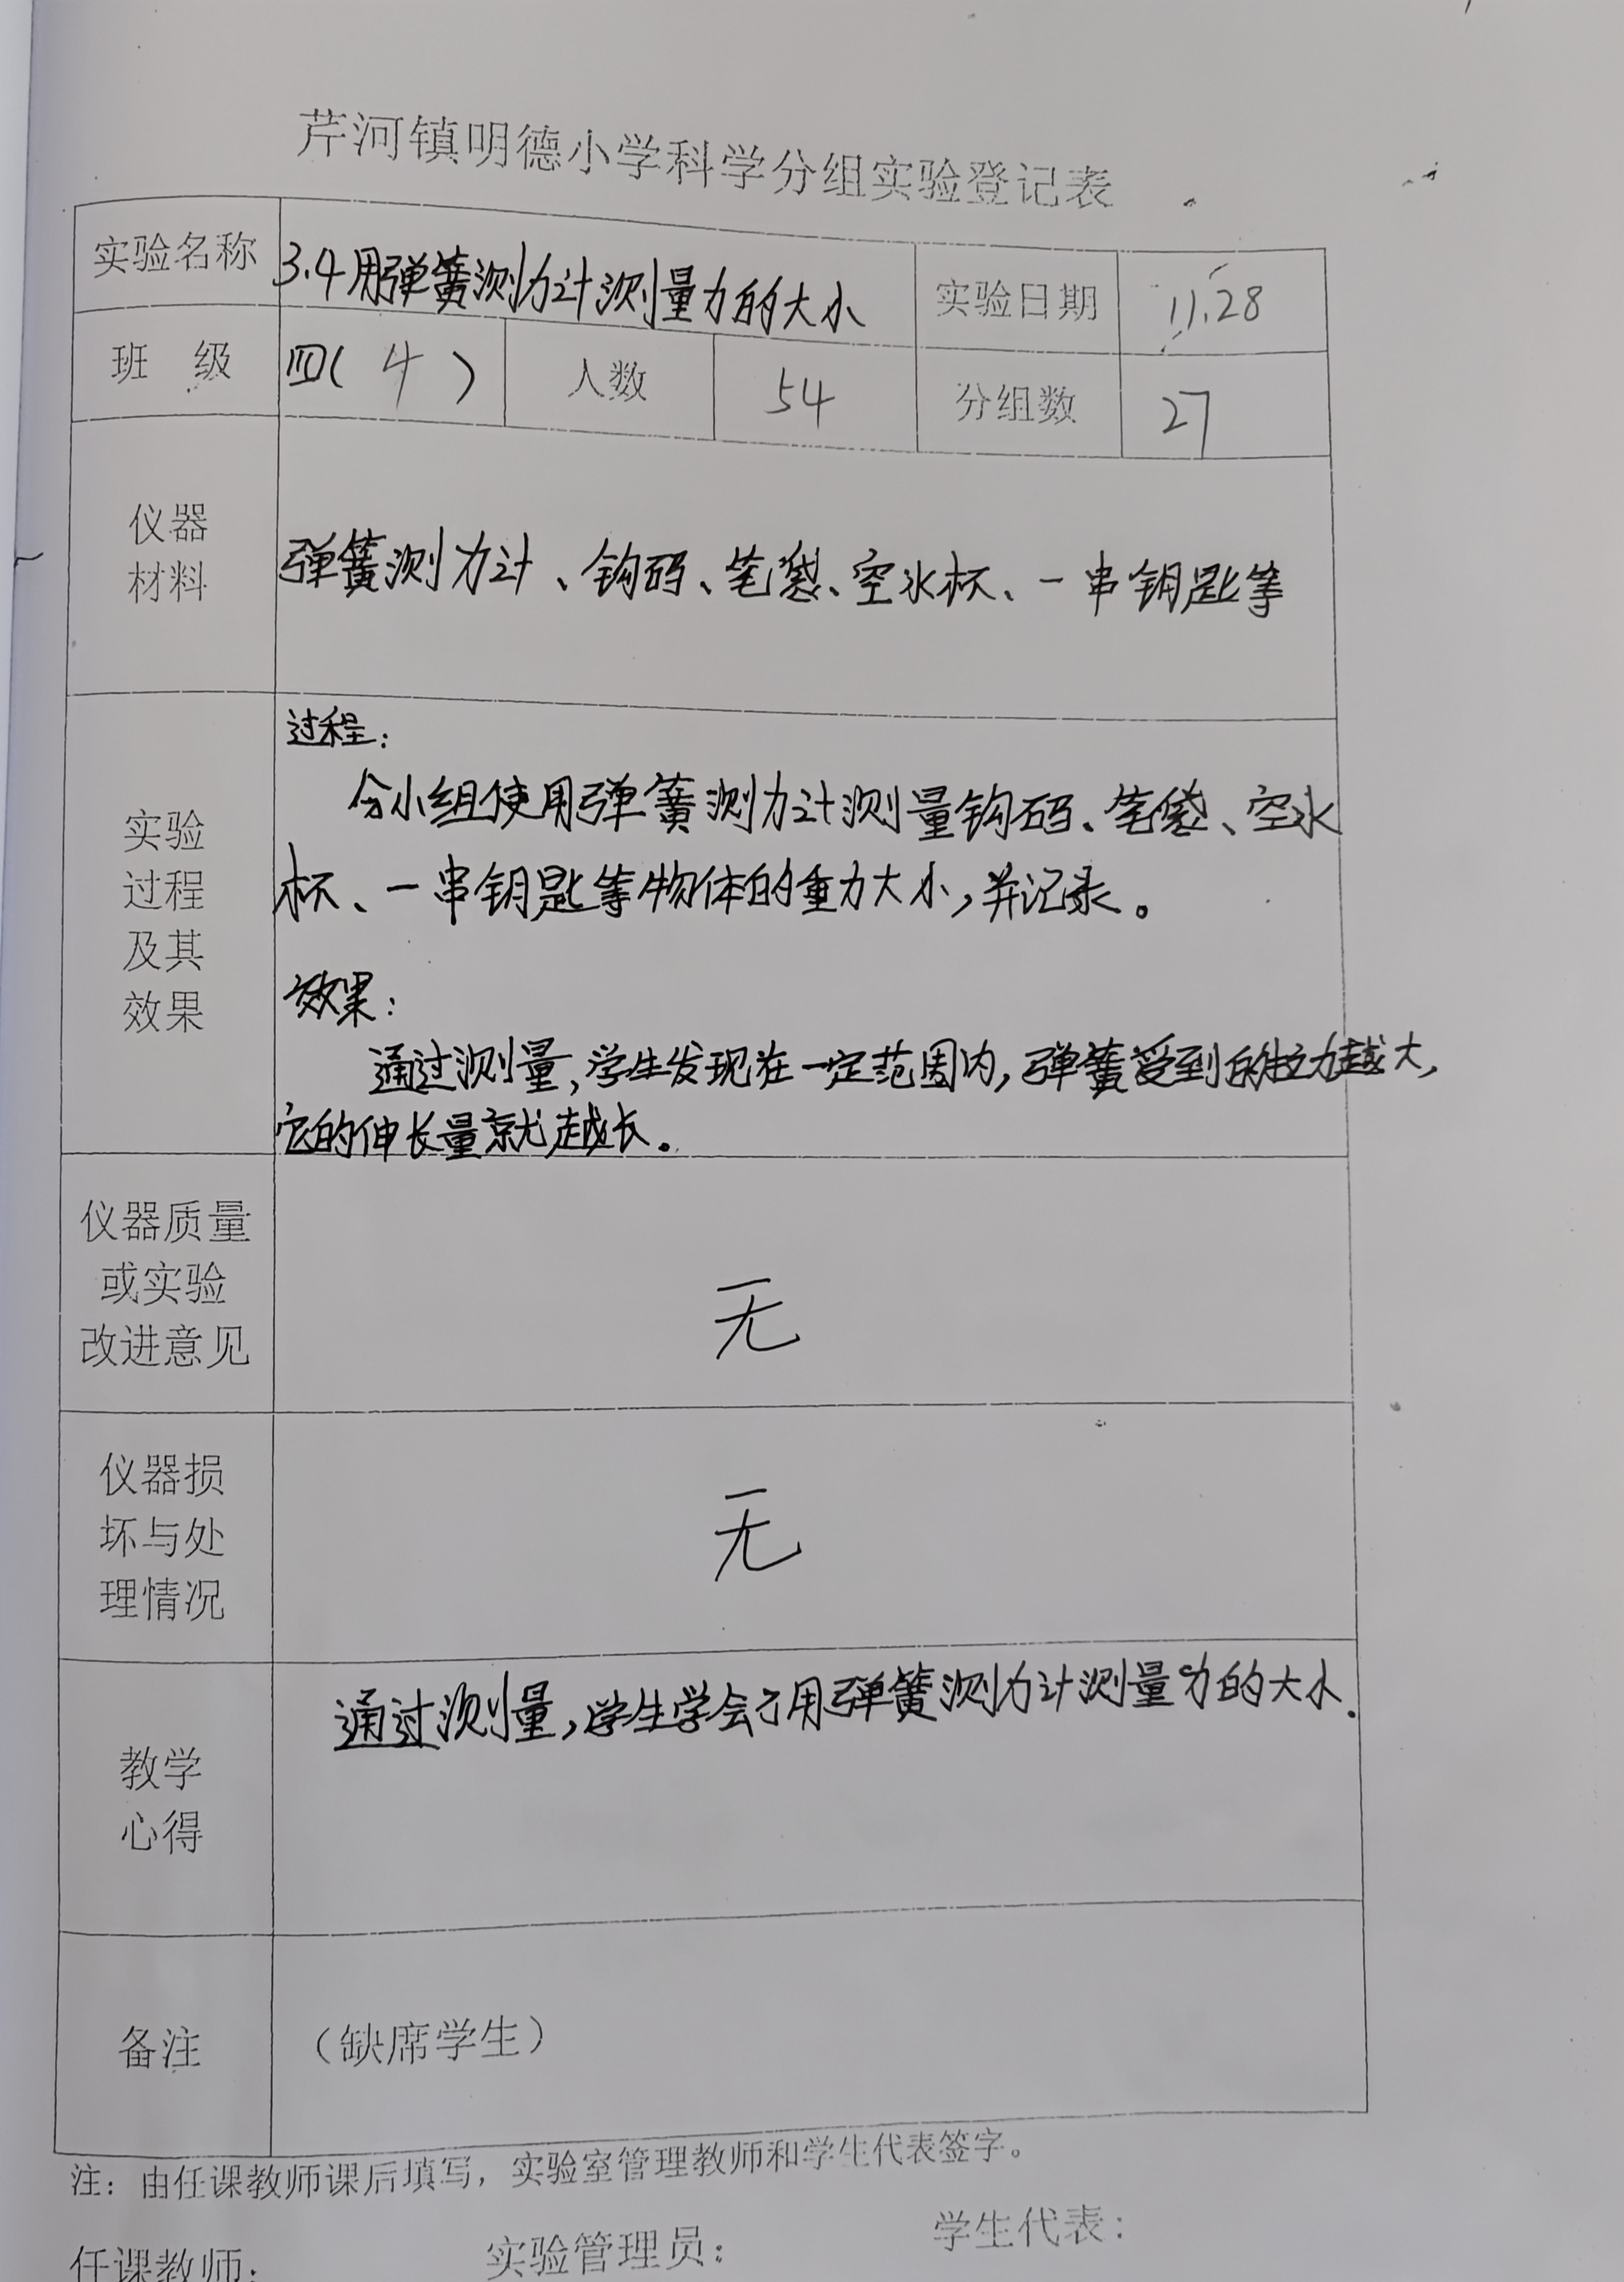 芹河镇明德小学科学分组实验登记表
实验名称 3.4用弹簧测力计测量力的大小 实验日期 11.28
班 级 四( 4 ) 人数 54 分组数 27
仪器
材料
弹簧测力计、钩码、笔袋、空水杯、一串钥匙等
实验
过程
及其
效果
过程：
分小组使用弹簧测力计测量钩码、笔袋、空水
杯、一串钥匙等物体的重力大小，并记录。
效果：
通过测量，学生发现在一定范围内，弹簧受到的拉力越大，
它的伸长量就越长。
仪器质量
或实验
改进意见
无
仪器损
坏与处
理情况
无
教学
心得
通过测量，学生学会了用弹簧测力计测量力的大小.
备注 （缺席学生）
注：由任课教师课后填写，实验室管理教师和学生代表签字。
任课教师： 实验管理员： 学生代表：